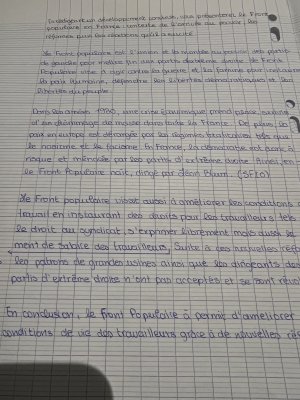 développement construit, vous présenterez le Front
populaire en France : contexte de l'arrivée au pouvoir, les
réformes puis les réactions qu'il a suscité
Le Front populaire est l'union et la montée au pouvoir des partis
de gauche pour mettre fin aux partis d'extrême droite. Le Front
Populaire vise à agir contre la guerre et la famine pour instaurer
la paix humaine, défendre les libertés démocratiques et les
libertés du peuple.
Dans les années 1930, une crise économique prend place, suivie
d'un chômage de masse dans toute la France. De plus, la
paix en europe est dérangée par les régimes totalitaires tels que
le nazisme et le fascisme. En France, la démocratie est mise à
risque et menacée par les partis d'extrême droite. Ainsi, en
le Front Populaire naît, dirigé par Léon Blum. (SFIO)
Le Front populaire visait aussi à améliorer les conditions
travail en instaurant des droits pour les travailleurs tels
le droit au syndicat, s'exprimer librement mais aussi
ment de salaire des travailleurs. Suite à ces nouvelles
les patrons de grandes usines ainsi que les dirigeants des
partis d'extrême droite n'ont pas acceptés et se sont
En conclusion, le Front Populaire à permis d'améliorer
conditions de vie des travailleurs grâce à de nouvelles